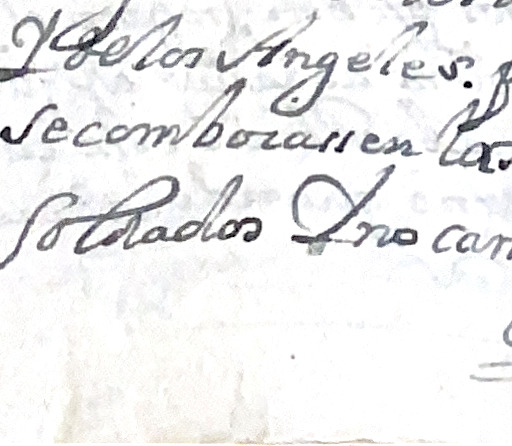 Y de los Angeles.
se combocassen las
soldados Y no can